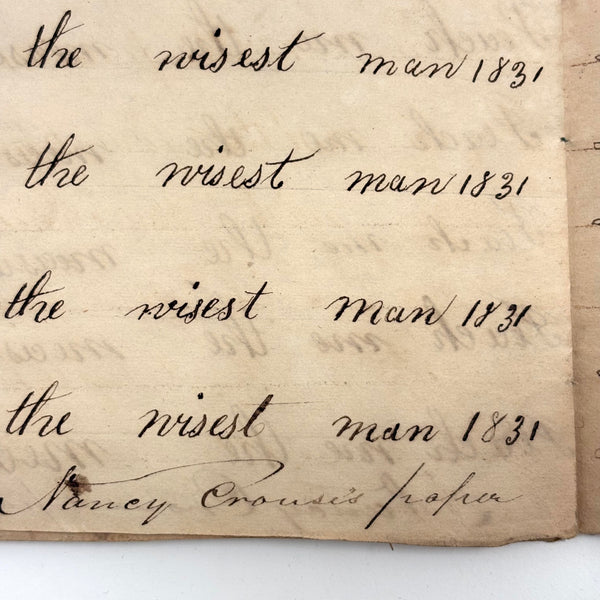 the wisest man 1831
the wisest man 1831
the wisest man 1831
the wisest man 1831
Nancy Crouse's paper